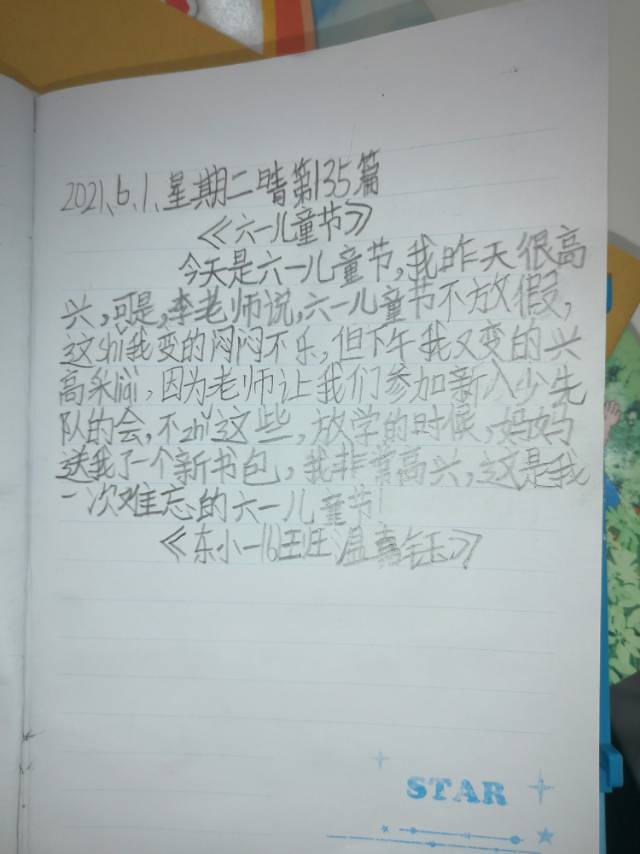 2021、6、1、星期二晴第135篇
《六一儿童节》
今天是六一儿童节,我昨天很高
兴,可是,李老师说,六一儿童节不放假,
这shǐ我变的闷闷不乐,但下午我又变的兴
高采liè,因为老师让我们参加新入少先
队的会,不zhǐ这些,放学的时候,妈妈
送我了一个新书包,我非常高兴,这是我
一次难忘的六一儿童节!
《东小一16王班温嘉钰》
STAR